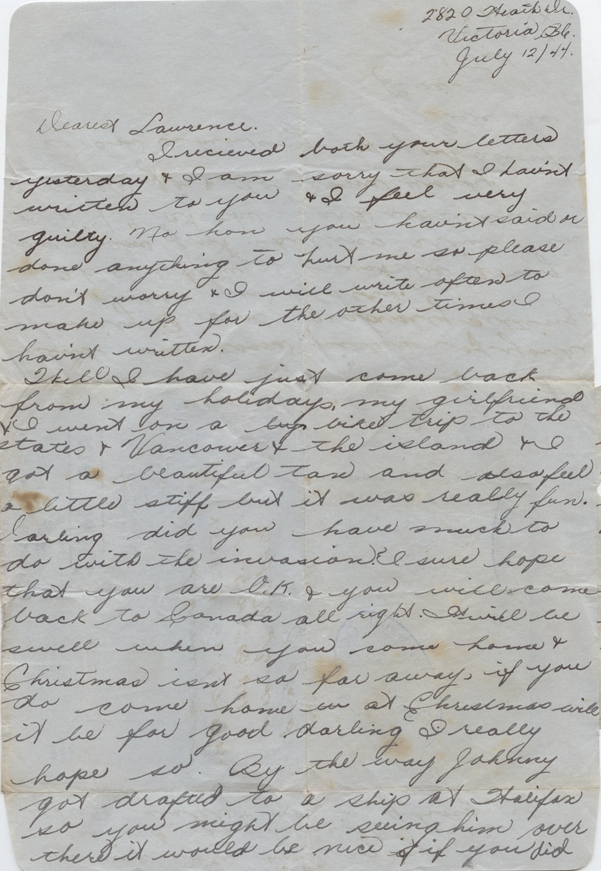 2820 Heath Dr.
Victoria, B.C.
July 12/44.
Dearest Lawrence.
I recieved both your letters
yesterday & I am sorry that I havn't
written to you & I feel very
guilty. No hon you havn't said or
done anything to hurt me so please
don't worry & I will write often to
make up for the other times I
havn't written.
Well I have just come back
from my holidays, my girlfriend
& I went on a big bike trip to the
states & Vancouver & the island & I
got a beautiful tan and also feel
a little stiff but it was really fun.
Darling did you have much to
do with the invasion? I sure hope
that you are O.K. & you will come
back to Canada all right. It will be
swell when you come home &
Christmas isn't so far away, if you
do come home at Christmas will
it be for good darling I really
hope so. By the way Johnny
got drafted to a ship at Halifax
so you might be seeing him over
there it would be nice if you did